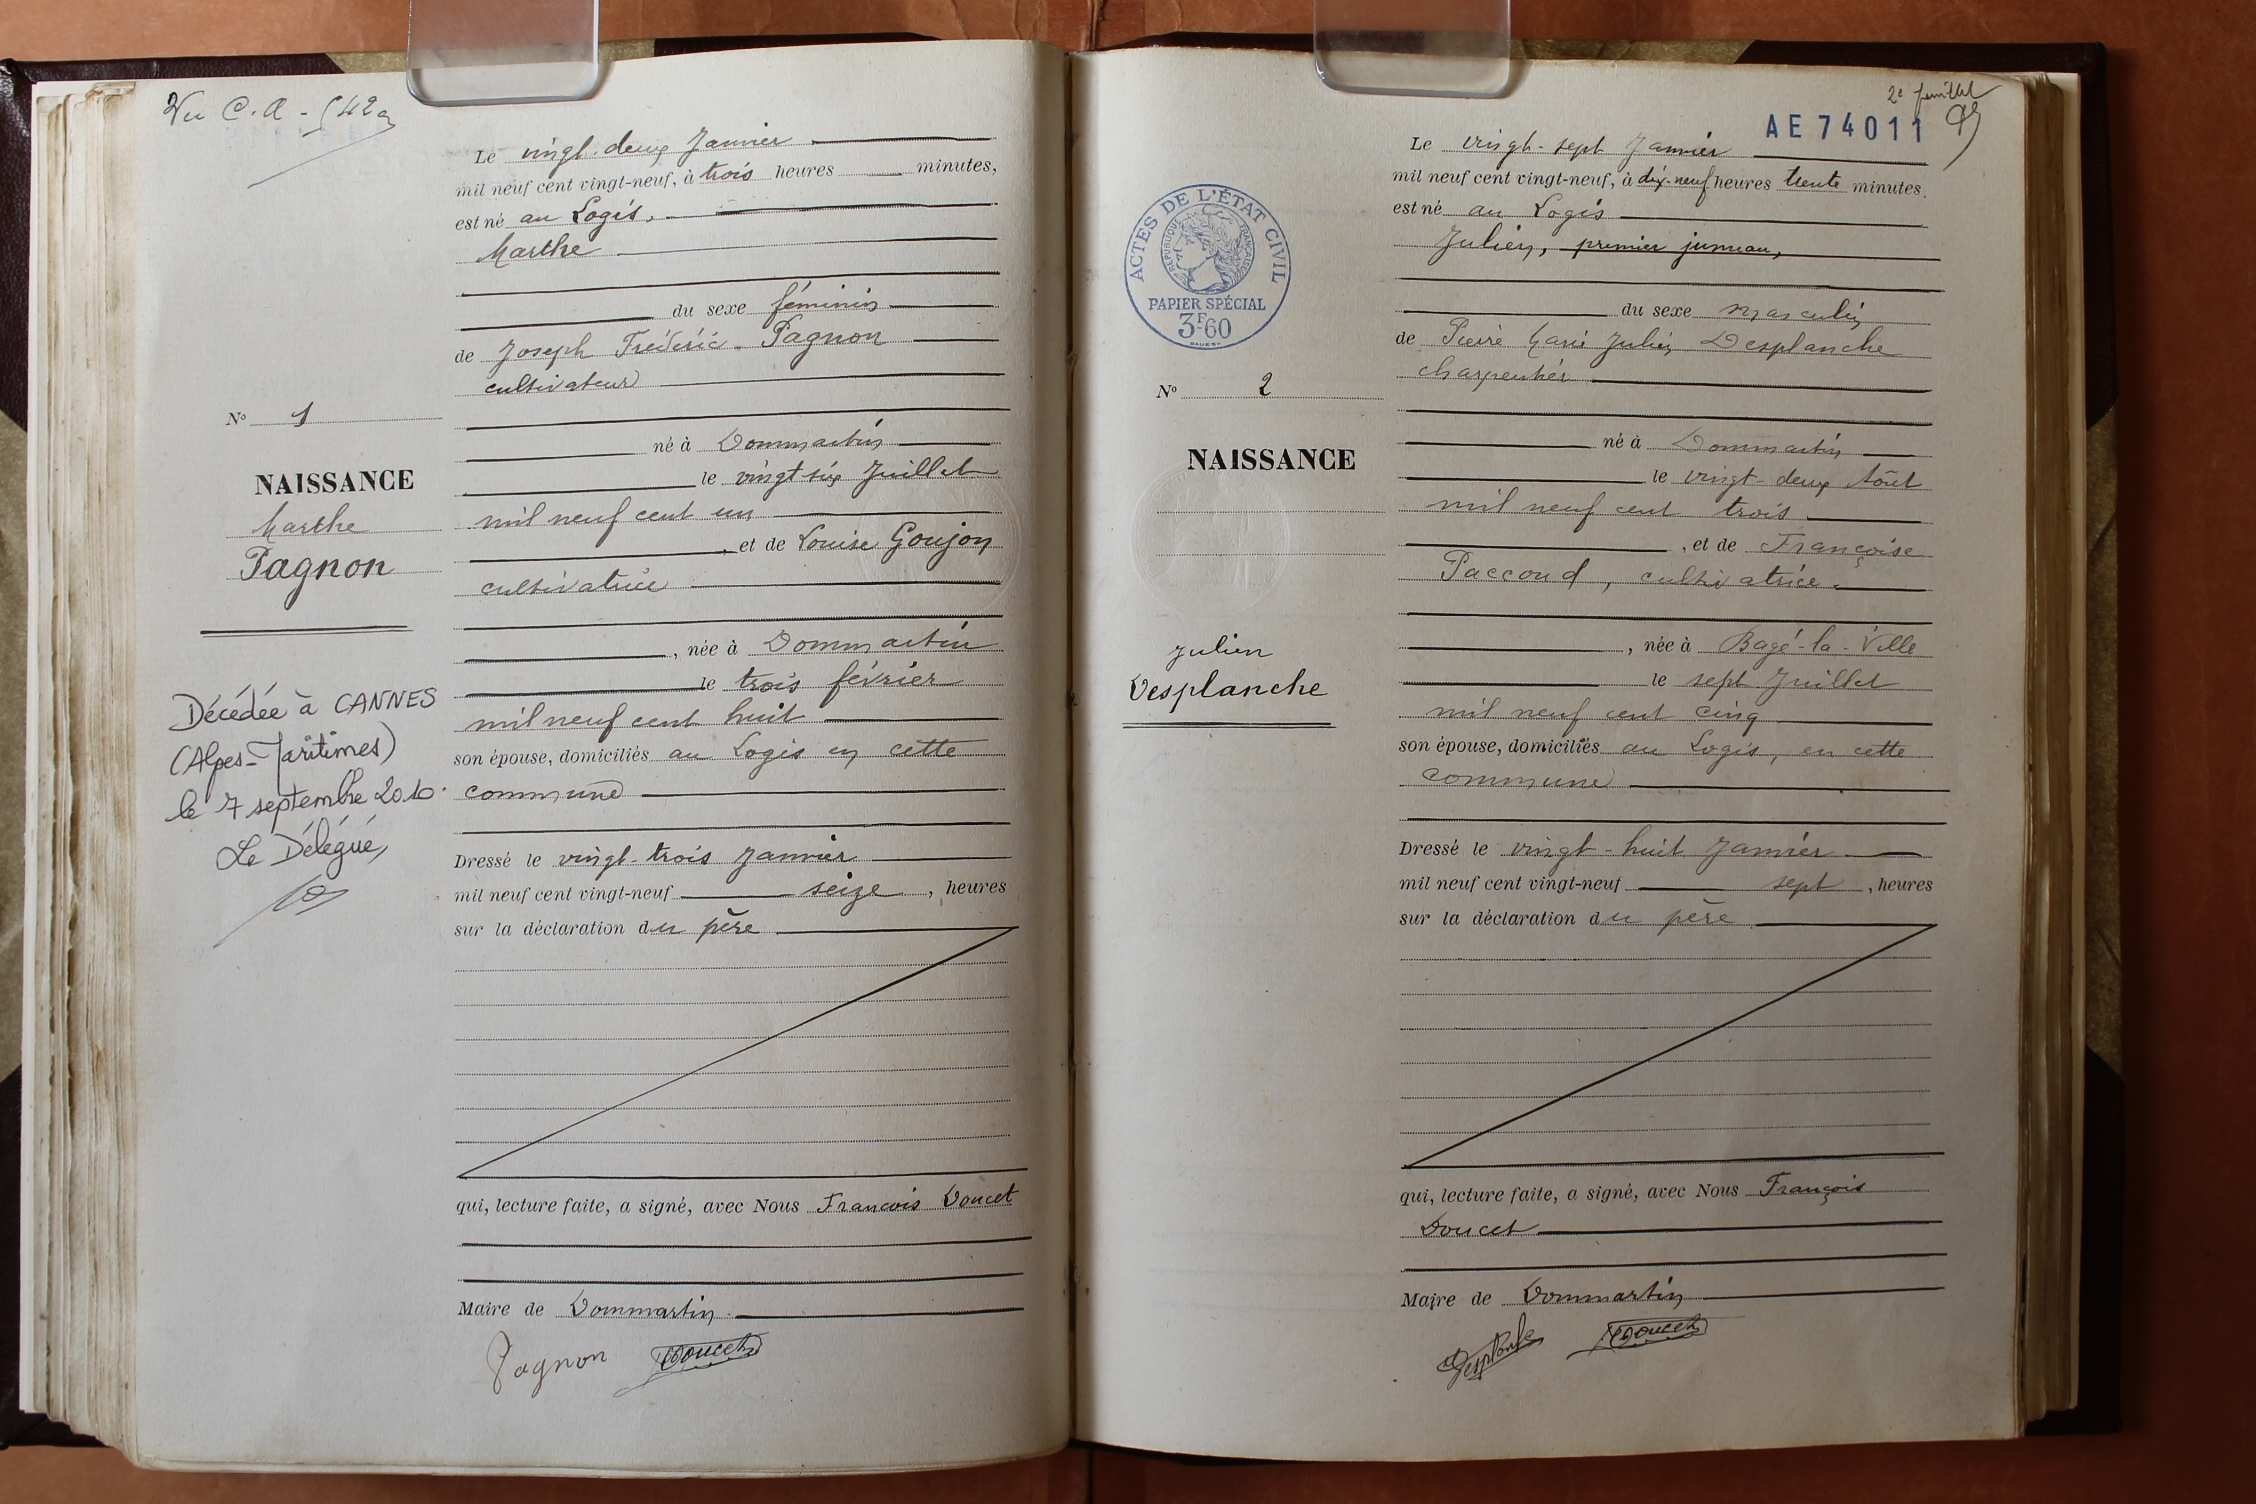 Vu C.A -
Le vingt-deux Janvier
mil neuf cent vingt-neuf, à trois heures minutes,
est né au Logis,
Marthe
du sexe féminin
de Joseph Frédéric Pagnon
cultivateur
né à Dommartin
le vingt six Juillet
mil neuf cent un
, et de Louise Goujon
cultivatrice
, née à Dommartin
le trois février
mil neuf cent huit
son épouse, domiciliés au Logis en cette
commune
Dressé le vingt-trois Janvier
mil neuf cent vingt-neuf seize, heures
sur la déclaration du père
qui, lecture faite, a signé, avec Nous Francois Doucet
Maire de Dommartin
Pagnon Doucet
No 1
NAISSANCE
Marthe
Pagnon
Décédée à CANNES
(Alpes-Maritimes)
le 7 septembre 2010.
Le Délégué,
2e feuillet
AE 74011
ACTES DE L'ÉTAT CIVIL
RÉPUBLIQUE FRANÇAISE
PAPIER SPÉCIAL
3F60
No 2
NAISSANCE
Julien
Desplanche
Le vingt-sept Janvier
mil neuf cent vingt-neuf, à dix-neuf heures trente minutes.
est né au Logis
Julien, premier jumeau,
du sexe masculin
de Pierre Marie Julien Desplanche
charpentier
né à Dommartin
le vingt-deux Août
mil neuf cent trois
, et de Françoise
Paccoud, cultivatrice
, née à Bagé-la-Ville
le sept Juillet
mil neuf cent cinq
son épouse, domiciliés au Logis, en cette
commune
Dressé le vingt-huit Janvier
mil neuf cent vingt-neuf sept, heures
sur la déclaration du père
qui, lecture faite, a signé, avec Nous François
Doucet
Maire de Dommartin
Desplanche Doucet